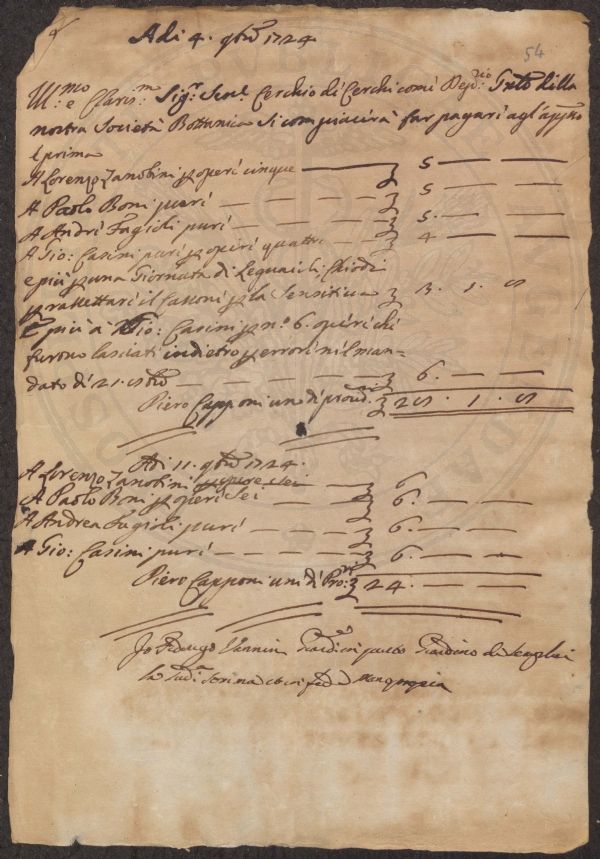 Adi 4. 9bre 1724.
54
Ill:mo e Clariss:mo Sig:r Sen:e Cerchio di Cerchi come Dep:rio della
nostra Società Bottanica si compiacerà far pagare agl'app:to
e prima
A Lorenzo Zanobini p opere cinque — 5 — —
A Paolo Boni pure — — — 5 — —
A Andre Fagioli pure — — — 5 — —
A Gio: Casini pure p opere quattro — 4 — —
e più p una Giornata di Legnaiolo, Chiodi
p rassettare il p la Sensitiva 3. 1. 5
E più à Gio: Casini p n.o 6. opere che
furono lasciati indietro p errore nel man=
dato di 21. — — — 6. — —
Piero Capponi uno de prove:ri 28. 1. 5
Adi 11. 9bre 1724.
A Lorenzo Zanobini p opere sei — 6 — —
A Paolo Boni p opere sei — — 6. — —
A Andrea Fagioli pure — — — 6. — —
A Gio: Casini pure — — — — 6. — —
Piero Capponi uno de Pro:ri 24. — —
Io Vannini Giardin Giardino de Semplici
mano propria